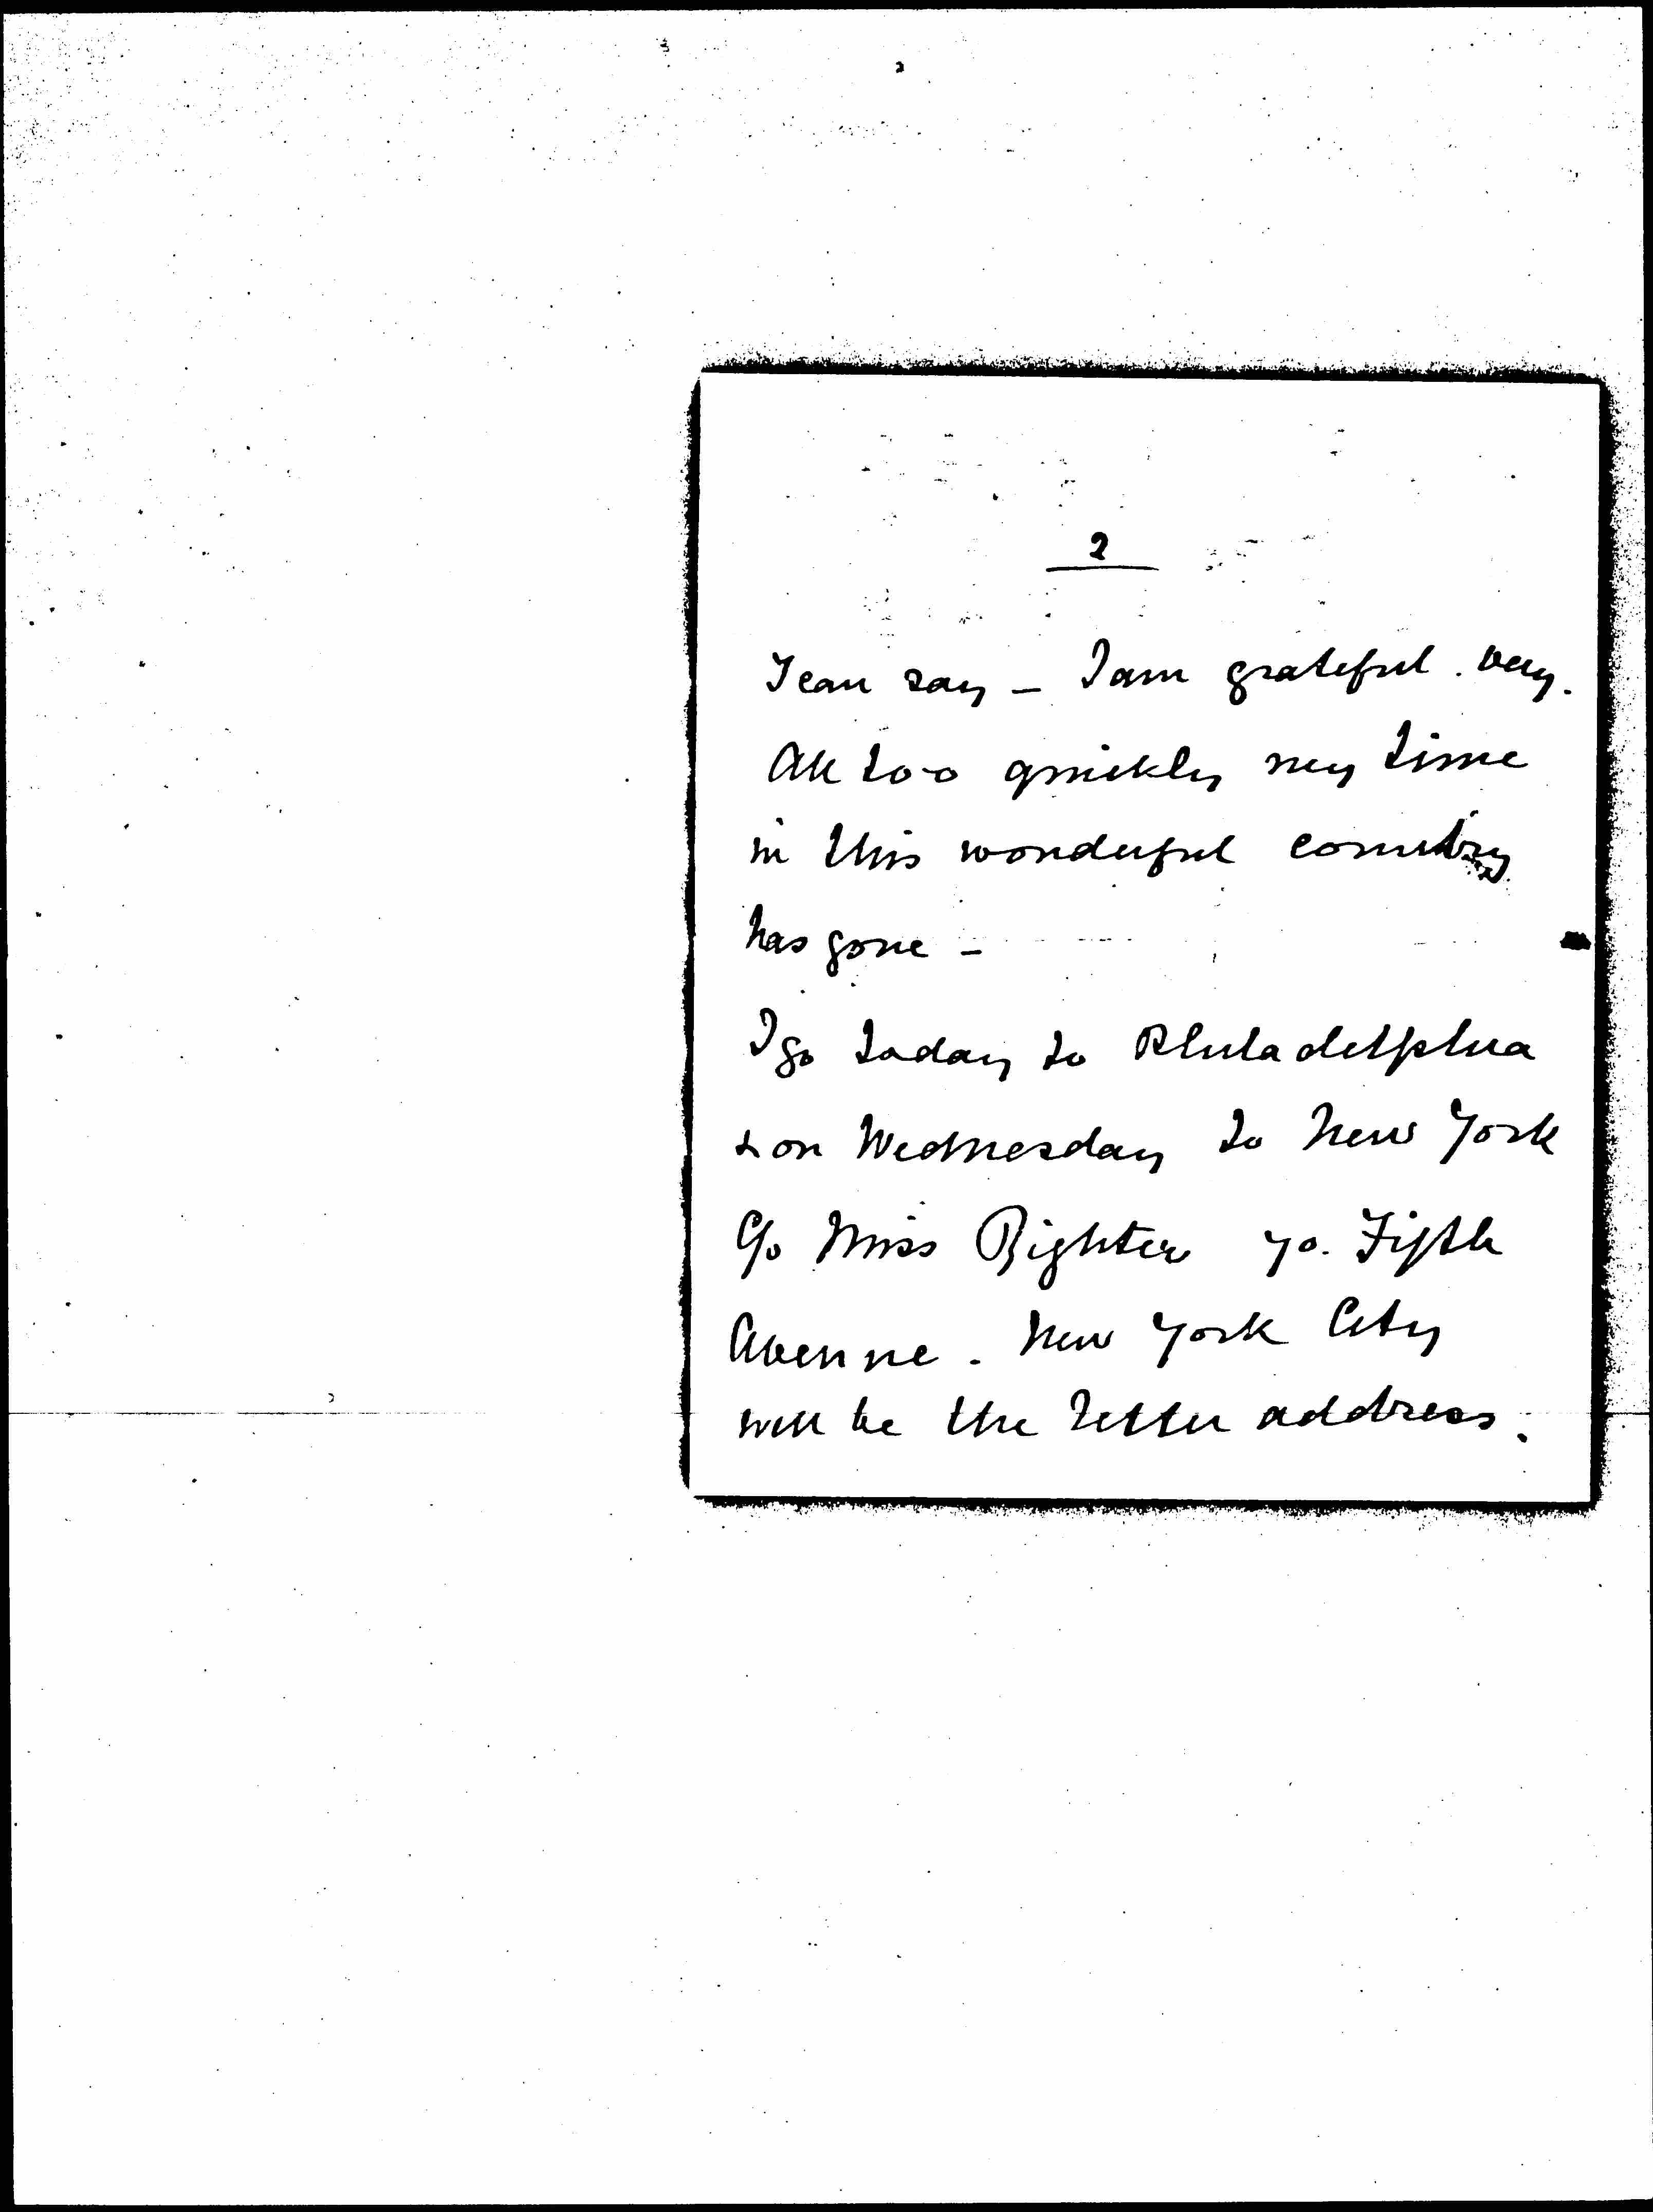 2
I can say - I am grateful. very.
All too quickly my time
in this wonderful country
has gone -
I go today to Philadelphia
& on Wednesday to New York
C/o Miss Righter 70. Fifth
Avenue. New York City
will be the letter address.